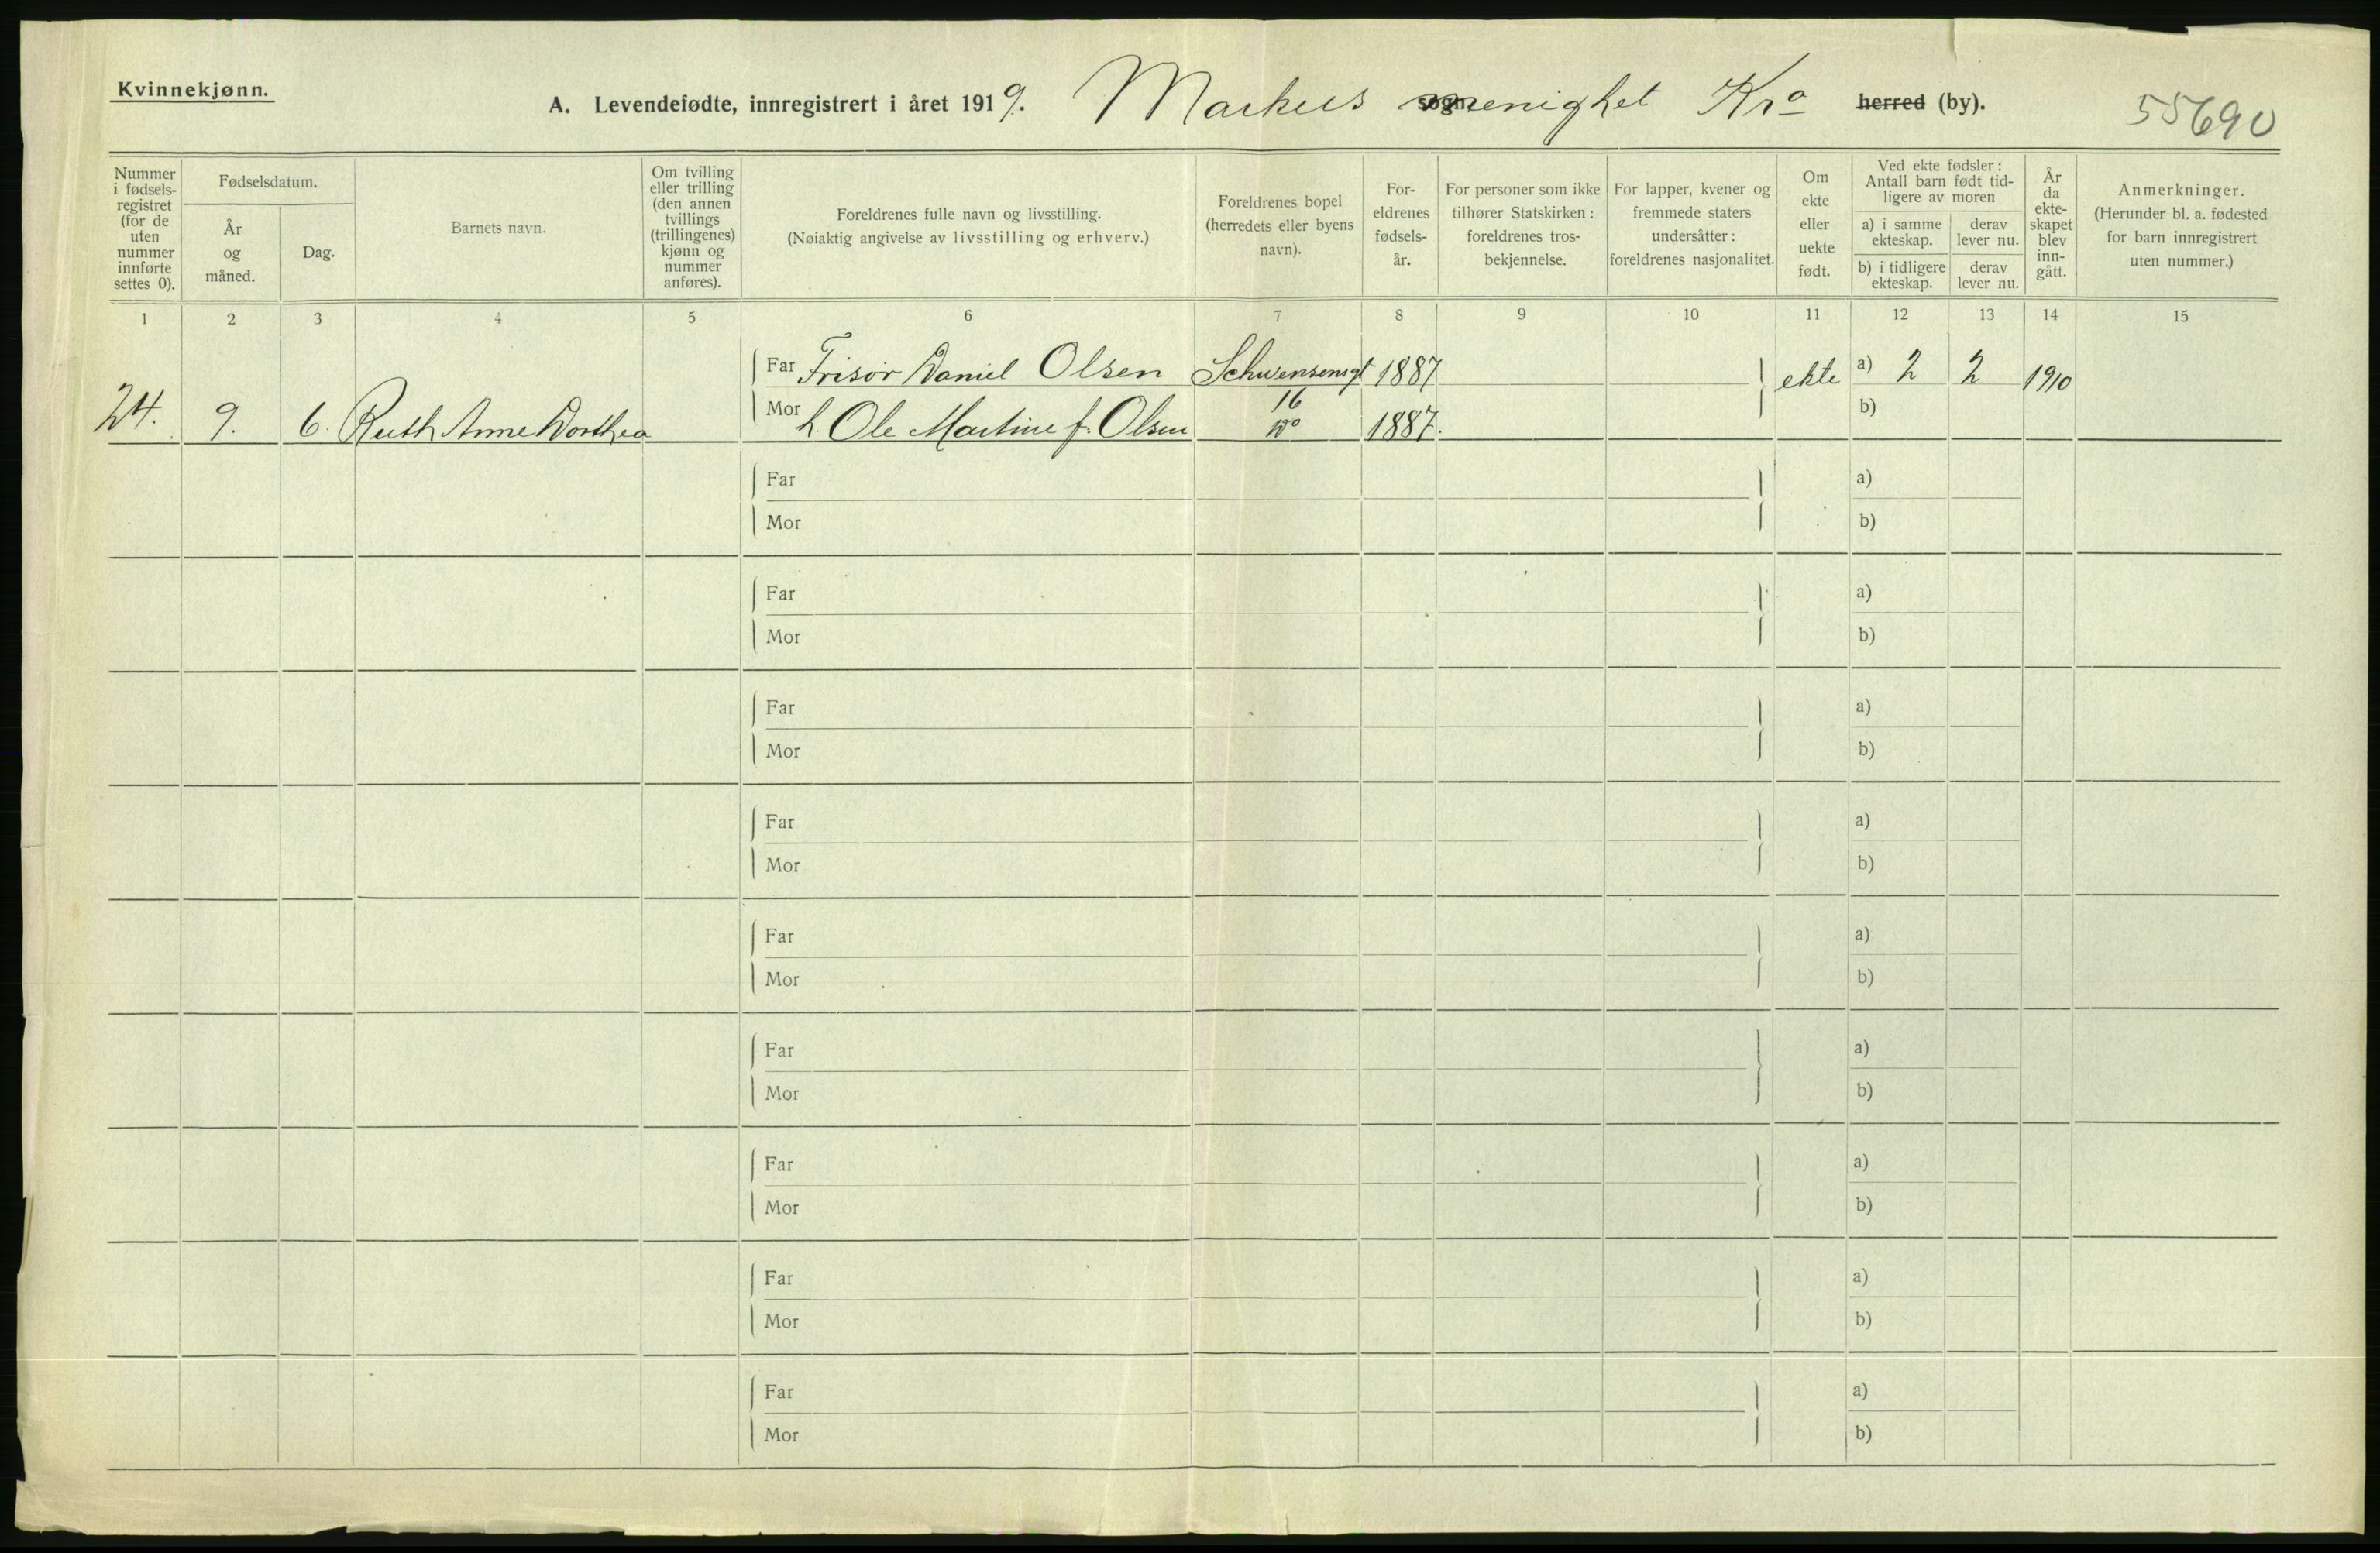 Kvinnekjønn.
A. Levendefødte, innregistrert i året 1919. Markus menighet Kra herred (by).
55690
Nummer i fødselsregistret (for de uten nummer innførte settes 0).
Fødselsdatum.
År og måned.
Dag.
Barnets navn.
Om tvilling eller trilling (den annen tvillings (trillingenes) kjønn og nummer anføres).
Foreldrenes fulle navn og livsstilling.
(Nøiaktig angivelse av livsstilling og erhverv.)
Foreldrenes bopel (herredets eller byens navn).
Foreldrenes fødselsår.
For personer som ikke tilhører Statskirken: foreldrenes trosbekjennelse.
For lapper, kvener og fremmede staters undersåtter: foreldrenes nasjonalitet.
Om ekte eller uekte født.
Ved ekte fødsler: Antall barn født tidligere av moren
a) i samme ekteskap.
derav lever nu.
b) i tidligere ekteskap.
derav lever nu.
År da ekteskapet blev inngått.
Anmerkninger.
(Herunder bl. a. fødested for barn innregistrert uten nummer.)
1 2 3 4 5 6 7 8 9 10 11 12 13 14 15
Far Frisør Daniel Olsen Schwensensgt 1887 ekte a) 2 2 1910
24. 9. 6. Ruth Anne Dorthea Mor h. Ole Martine f. Olsen 16 do 1887. b)
Far a)
Mor b)
Far a)
Mor b)
Far a)
Mor b)
Far a)
Mor b)
Far a)
Mor b)
Far a)
Mor b)
Far a)
Mor b)
Far a)
Mor b)
Far a)
Mor b)